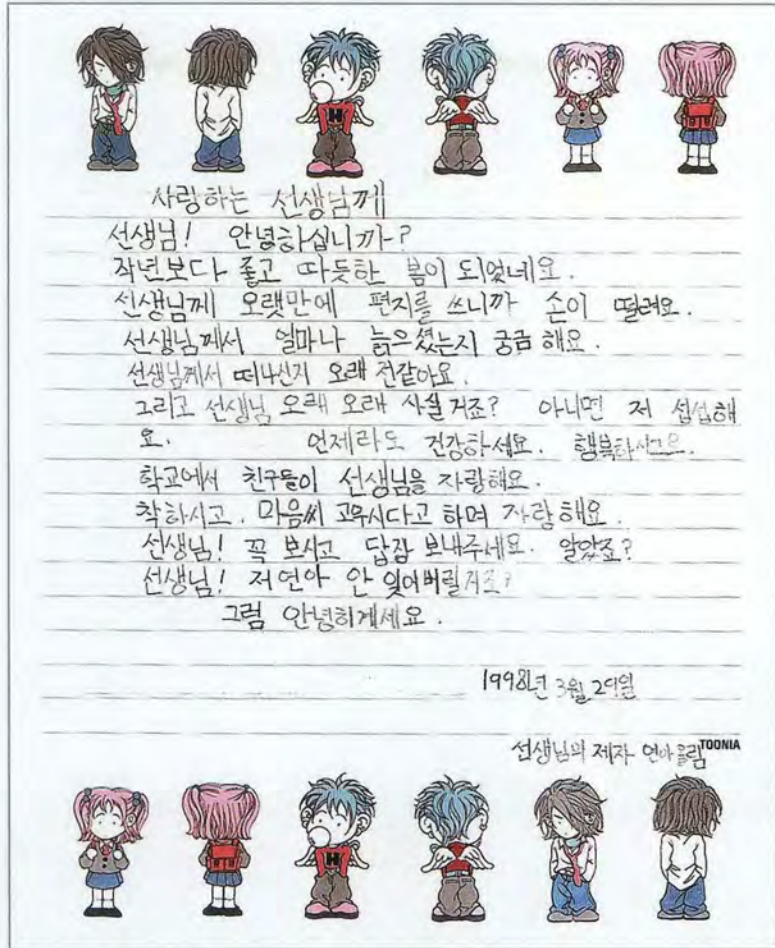 사랑하는 선생님께
선생님! 안녕하십니까?
작년보다 좋고 따듯한 봄이 되었네요.
선생님께 오랫만에 편지를 쓰니까 손이 떨려요.
선생님께서 얼마나 늙으셨는지 궁금해요.
선생님께서 떠나신지 오래 전같아요.
그리고 선생님 오래 오래 사실거죠? 아니면 저 섭섭해
요. 언제라도 건강하세요. 행복하시고요.
학교에서 친구들이 선생님을 자랑해요.
착하시고. 마음씨 고우시다고 하며 자랑해요.
선생님! 꼭 보시고 답장 보내주세요. 알았죠?
선생님! 저 연아 안 잊어버릴거죠?
그럼 안녕히계세요.
1998년 3월 29일
선생님의 제자 연아올림
TOONIA
H
H